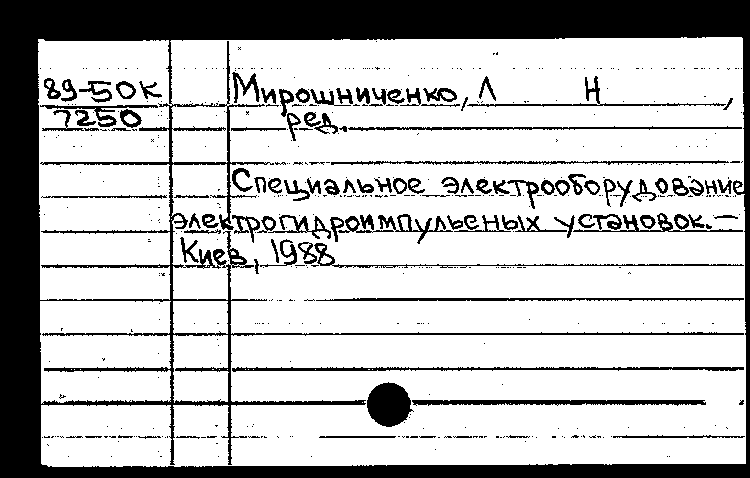 89-50к Мирошниченко, Л Н ,
7250 ред.
Специальное электрооборудование
электрогидроимпульсных установок.—
Киев, 1988